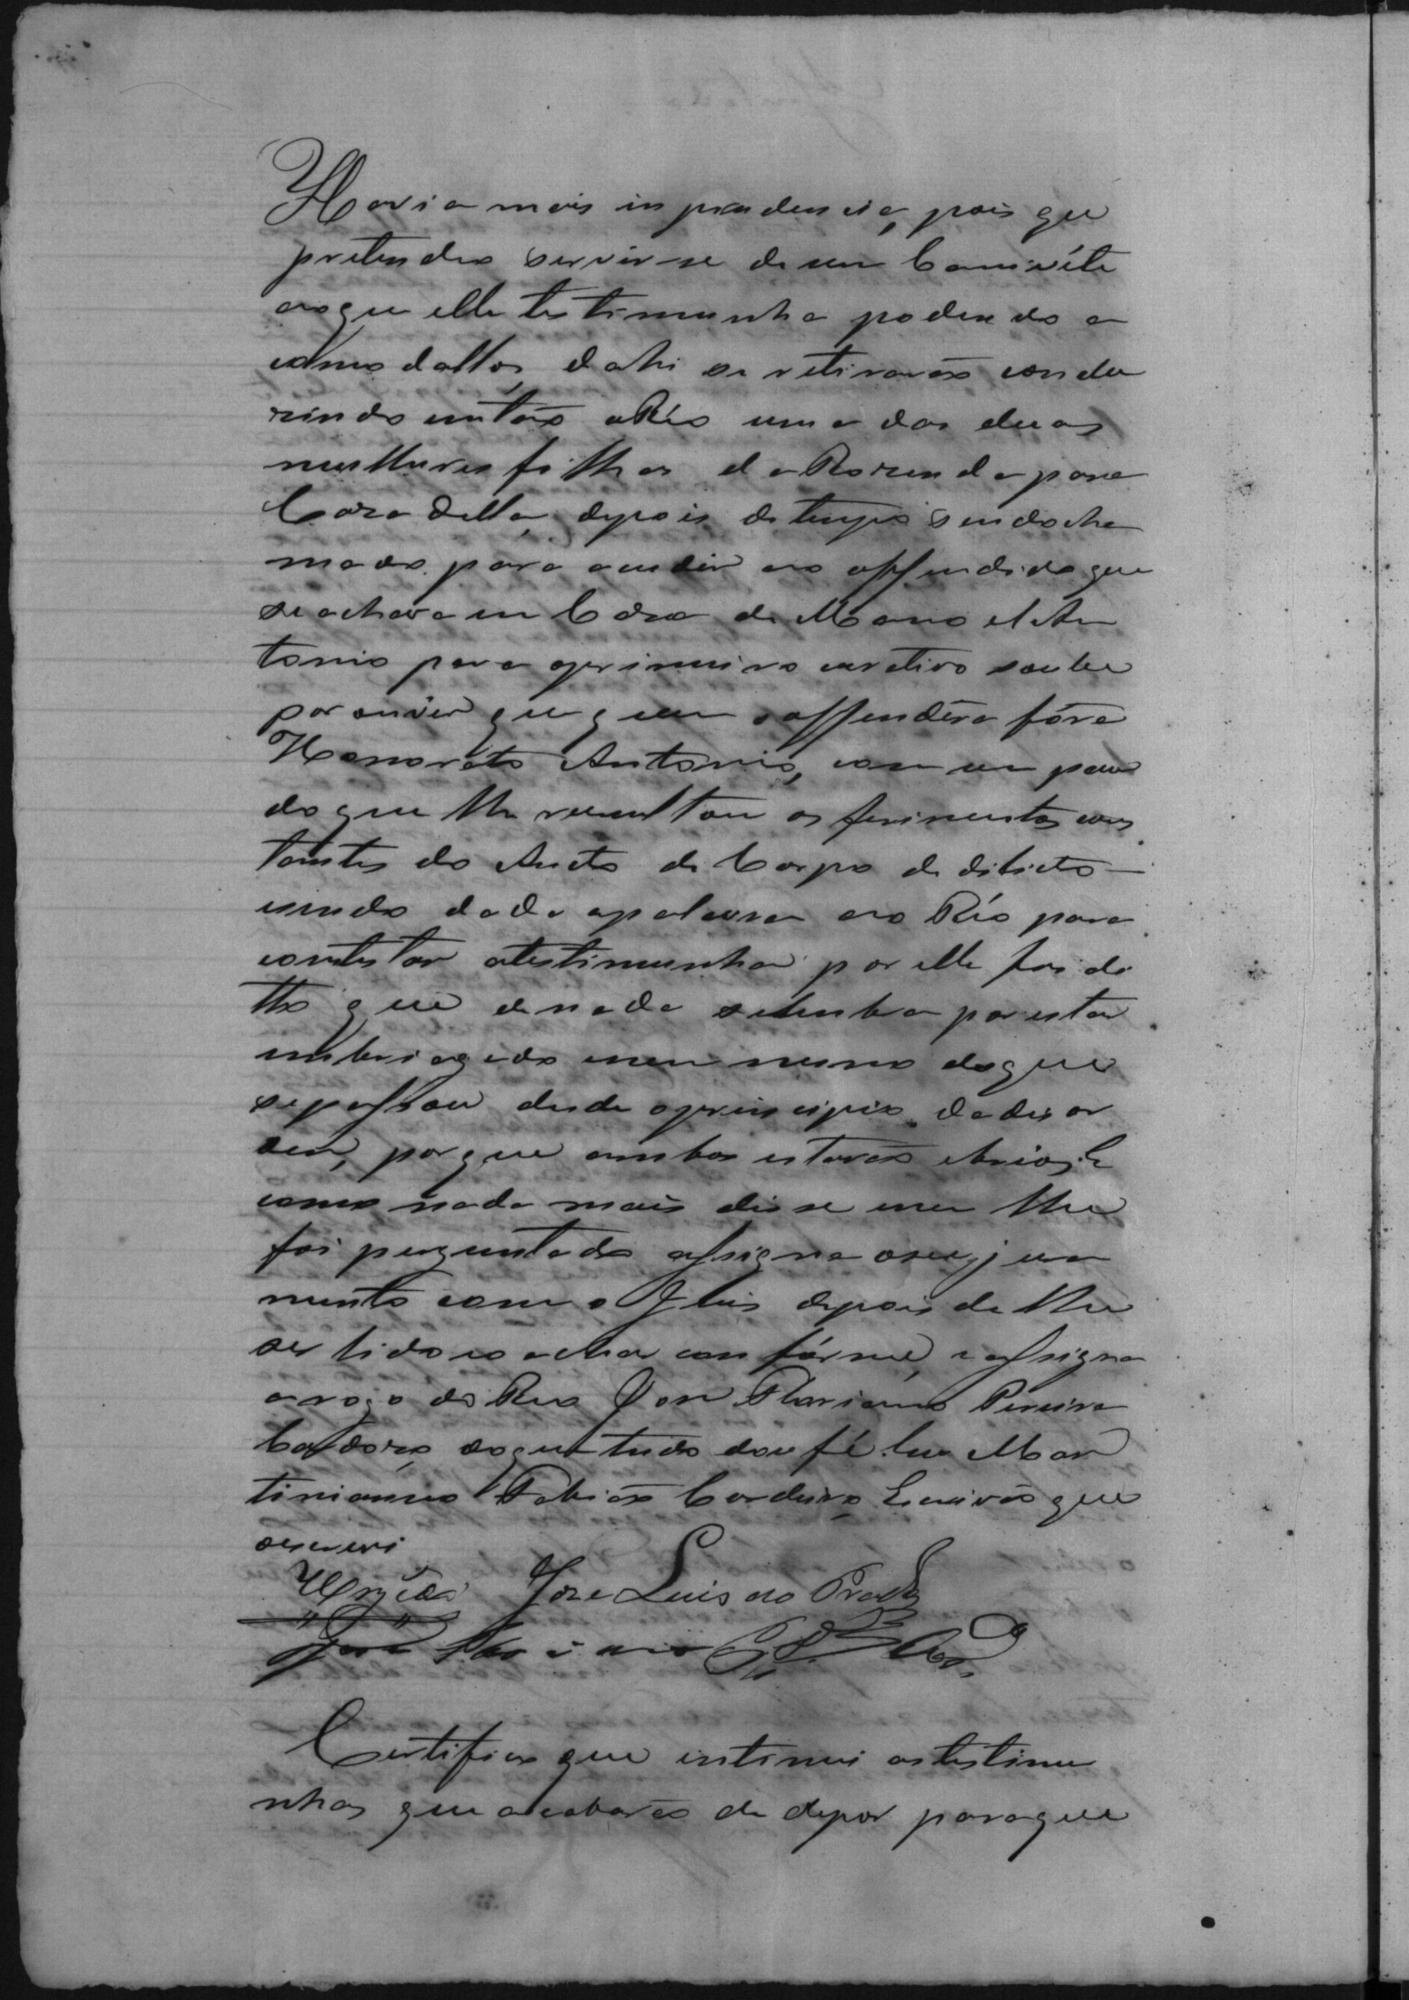 Havia mais inprudencia, pois que
pretendeo servir-se de um Canivéte
ao que elle testimunha podendo a
comodallos, dahi se retirarão condu
zindo então o Réo uma das duas
mulheres filhas da Rozenda para
Caza della, depois de tempo sendo cha
mado para acudir ao offendido que
se achava em Caza de Manoel An
tonio para o primeiro curativo soube
por ouvir que quem o offendêra fôra
Honorato Antonio, com um páu
do que lhe resultou os ferimentos cons
tantes do Aucto de Corpo de delicto —
sendo dada a palavra ao Réo para
contestar a testimunha por elle foi di
tto que de nada se lembra por estar
embriagado nem mesmo do que
se passou desde o principio da desor
dem, porque ambos estavão ebrios, E
como nada mais disse nem lhe
foi perguntado assigna o seu jura
mento com o Juis depois de lhe
ser lido e o achar conforme, e assigna
a rogo do Reo José Mariano Pereira
Cardozo, do que tudo dou fé. Eu Mar
tinianno Fabião Cordeiro Escrivão que
escrevi
José Luis do Prado
José Mariano
Certifico que intimei as testimu
nhas que acabarão de depor para que